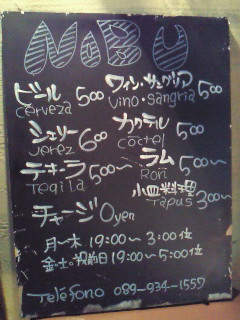 NOBU
ビール 500 ワイン・サングリア 500
cerveza vino・sangria
シェリー 600 カクテル 500
jerez coctel
テキーラ 500〜 ラム 500〜
Teqila Ron
小皿料理 300〜
Tapus
チャージ 0yen
月〜木 19:00〜3:00位
金.土.祝前日 19:00〜5:00位
Teléfono 089-934-1557